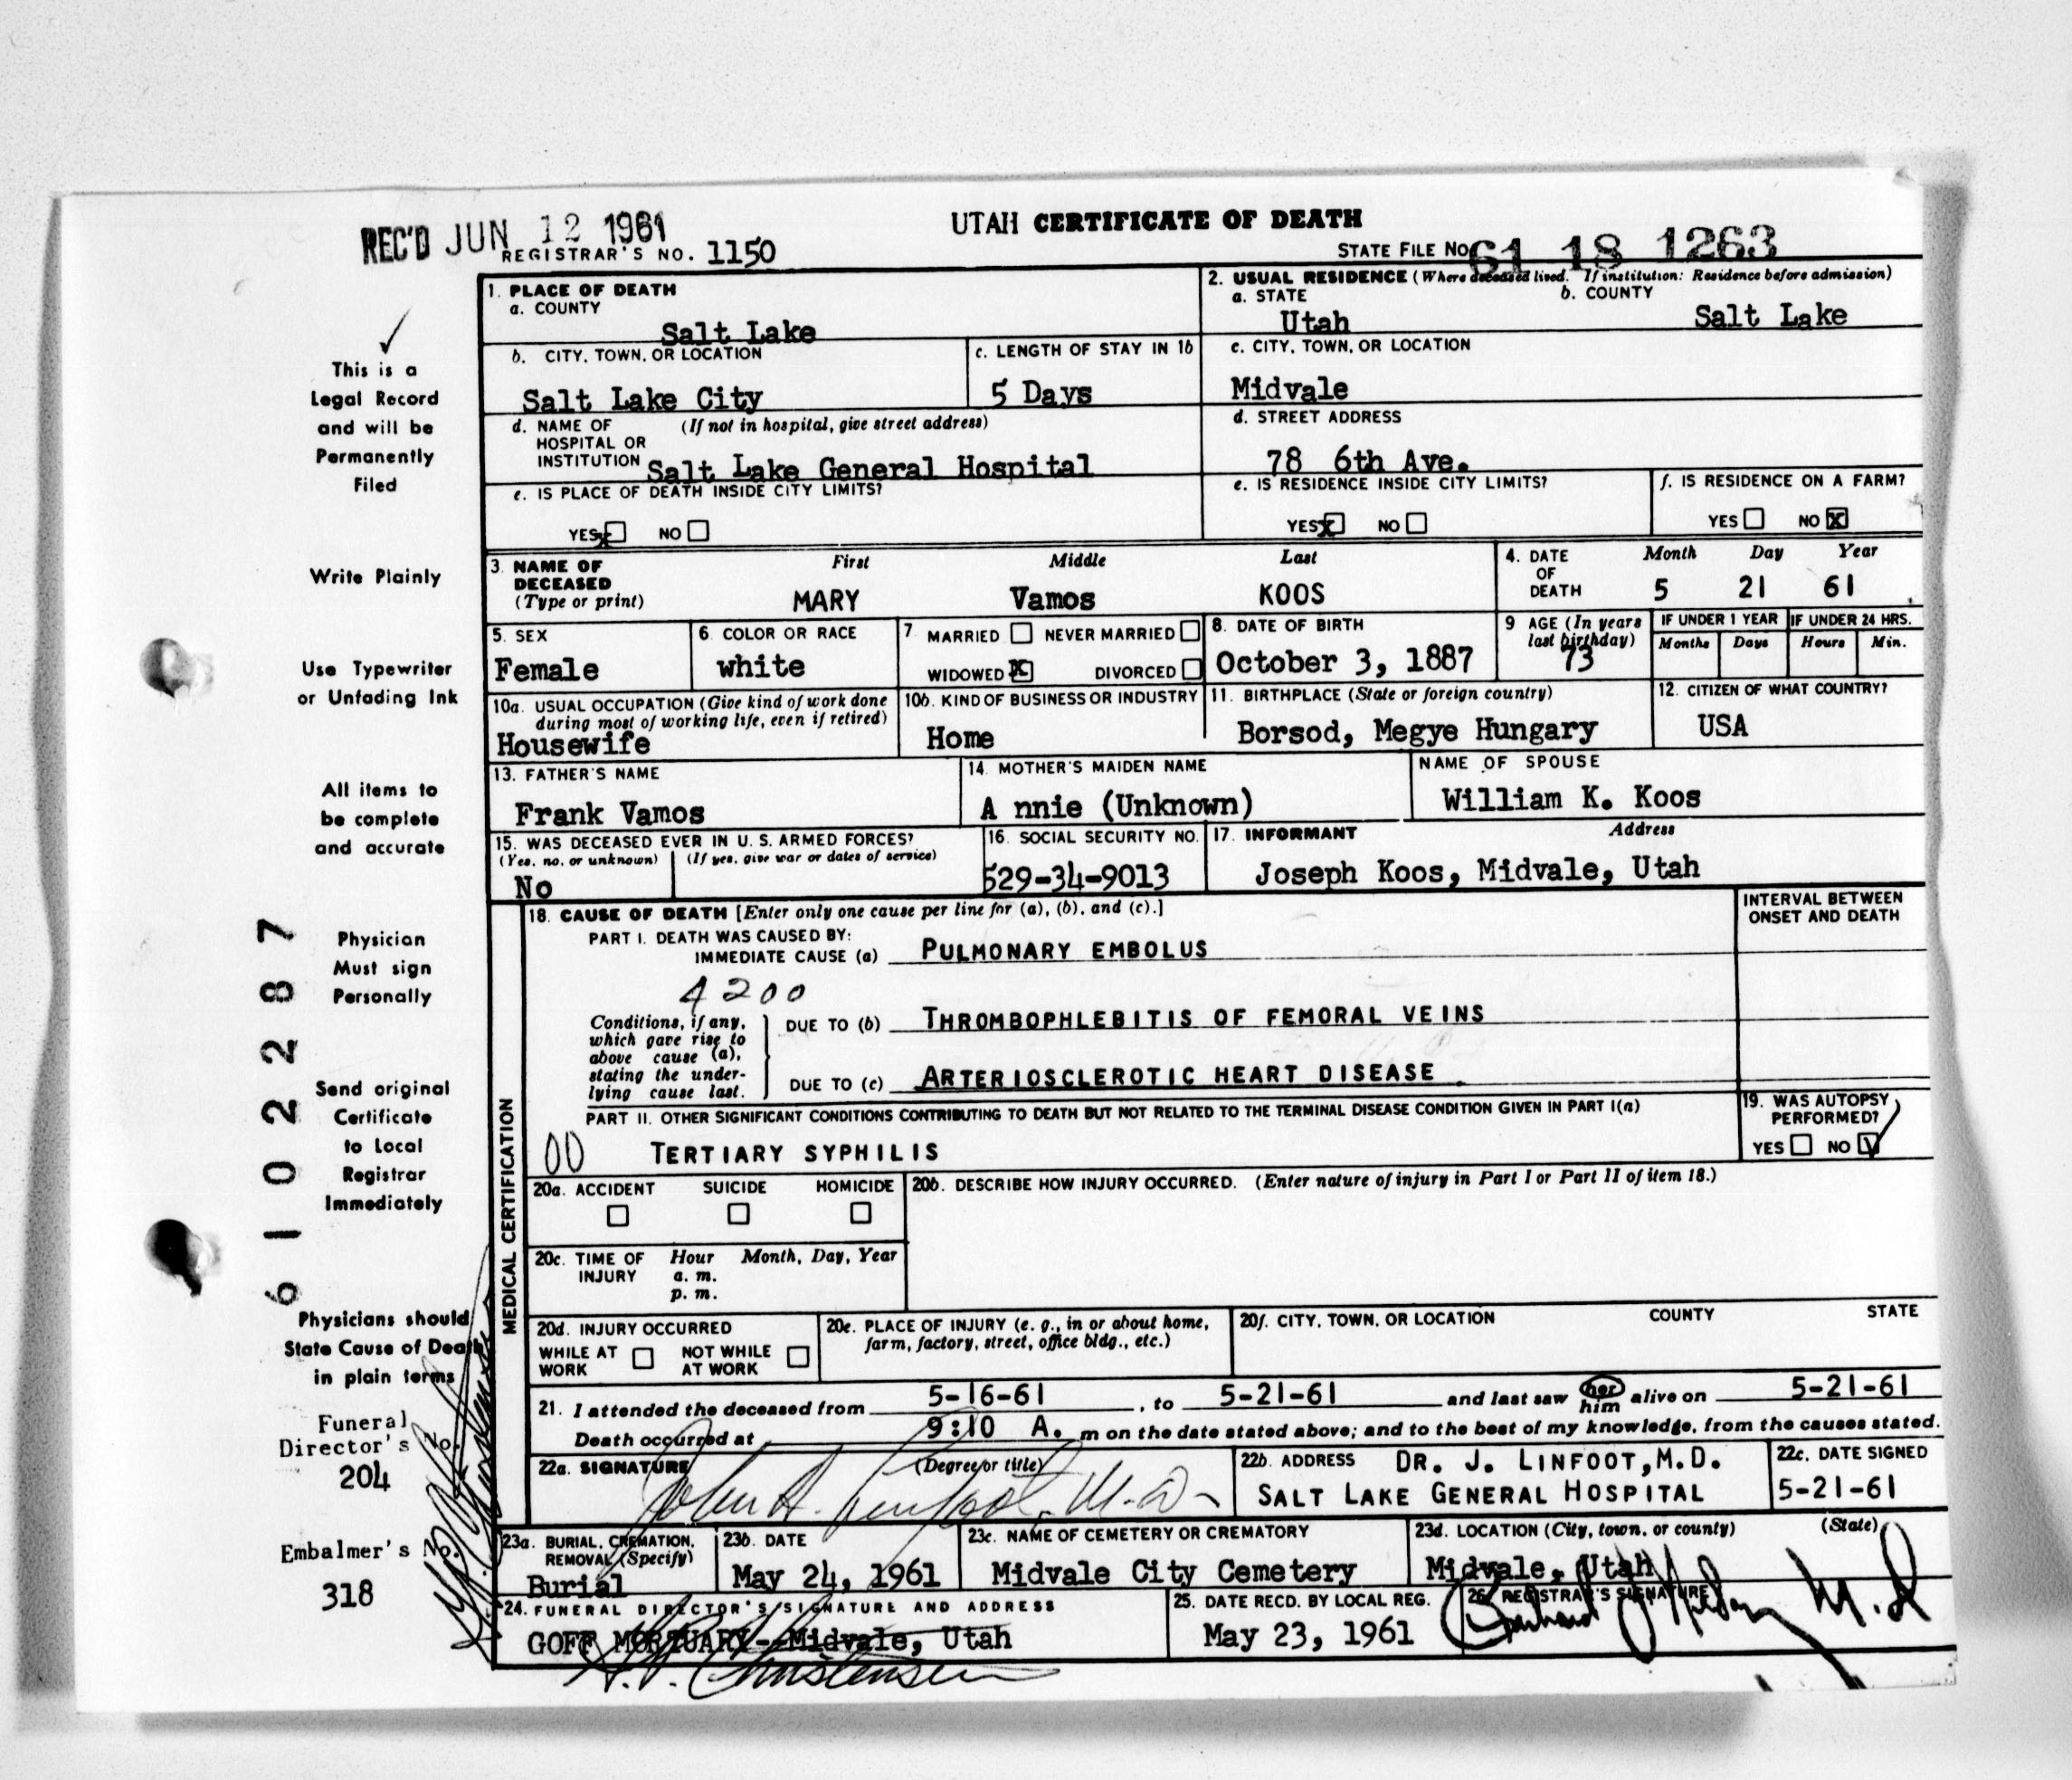 REC'D JUN 12 1961
UTAH CERTIFICATE OF DEATH
REGISTRAR'S NO. 1150
STATE FILE NO. 61 18 1263
This is a
Legal Record
and will be
Permanently
Filed
Write Plainly
Use Typewriter
or Unfading Ink
All items to
be complete
and accurate
Physician
Must sign
Personally
Send original
Certificate
to Local
Registrar
Immediately
Physicians should
State Cause of Death
in plain terms
Funeral
Director's No.
204
Embalmer's No.
318
6102287
1. PLACE OF DEATH
a. COUNTY
Salt Lake
2. USUAL RESIDENCE (Where deceased lived. If institution: Residence before admission)
a. STATE
Utah
b. COUNTY
Salt Lake
b. CITY, TOWN, OR LOCATION
Salt Lake City
c. LENGTH OF STAY IN 1b
5 Days
c. CITY, TOWN, OR LOCATION
Midvale
d. NAME OF (If not in hospital, give street address)
HOSPITAL OR
INSTITUTION Salt Lake General Hospital
d. STREET ADDRESS
78 6th Ave.
e. IS PLACE OF DEATH INSIDE CITY LIMITS?
YES x NO
e. IS RESIDENCE INSIDE CITY LIMITS?
YES x NO
f. IS RESIDENCE ON A FARM?
YES NO X
3. NAME OF DECEASED
(Type or print)
First Middle Last
MARY Vamos KOOS
4. DATE OF DEATH
Month Day Year
5 21 61
5. SEX
Female
6. COLOR OR RACE
white
7 MARRIED NEVER MARRIED
WIDOWED X DIVORCED
8. DATE OF BIRTH
October 3, 1887
9 AGE (In years
last birthday)
73
IF UNDER 1 YEAR
Months Days
IF UNDER 24 HRS.
Hours Min.
10a. USUAL OCCUPATION (Give kind of work done
during most of working life, even if retired)
Housewife
10b. KIND OF BUSINESS OR INDUSTRY
Home
11. BIRTHPLACE (State or foreign country)
Borsod, Megye Hungary
12. CITIZEN OF WHAT COUNTRY?
USA
13. FATHER'S NAME
Frank Vamos
14. MOTHER'S MAIDEN NAME
A nnie (Unknown)
NAME OF SPOUSE
William K. Koos
15. WAS DECEASED EVER IN U. S. ARMED FORCES?
(Yes, no, or unknown) (If yes, give war or dates of service)
No
16. SOCIAL SECURITY NO.
529-34-9013
17. INFORMANT Address
Joseph Koos, Midvale, Utah
MEDICAL CERTIFICATION
18. CAUSE OF DEATH [Enter only one cause per line for (a), (b), and (c).]
INTERVAL BETWEEN
ONSET AND DEATH
PART I. DEATH WAS CAUSED BY:
IMMEDIATE CAUSE (a) PULMONARY EMBOLUS
4200
Conditions, if any,
which gave rise to
above cause (a),
stating the under-
lying cause last.
DUE TO (b) THROMBOPHLEBITIS OF FEMORAL VEINS
DUE TO (c) ARTERIOSCLEROTIC HEART DISEASE.
PART II. OTHER SIGNIFICANT CONDITIONS CONTRIBUTING TO DEATH BUT NOT RELATED TO THE TERMINAL DISEASE CONDITION GIVEN IN PART I(a)
00 TERTIARY SYPHILIS
19. WAS AUTOPSY
PERFORMED?
YES NO
20a. ACCIDENT SUICIDE HOMICIDE
20b. DESCRIBE HOW INJURY OCCURRED. (Enter nature of injury in Part I or Part II of item 18.)
20c. TIME OF INJURY
Hour Month, Day, Year
a. m.
p. m.
20d. INJURY OCCURRED
WHILE AT WORK NOT WHILE AT WORK
20e. PLACE OF INJURY (e. g., in or about home,
farm, factory, street, office bldg., etc.)
20f. CITY, TOWN, OR LOCATION COUNTY STATE
21. I attended the deceased from 5-16-61, to 5-21-61 and last saw her him alive on 5-21-61
Death occurred at 9:10 A. m on the date stated above; and to the best of my knowledge, from the causes stated.
22a. SIGNATURE (Degree or title)
John A. Linfoot, M.D.
22b. ADDRESS DR. J. LINFOOT, M.D.
SALT LAKE GENERAL HOSPITAL
22c. DATE SIGNED
5-21-61
23a. BURIAL, CREMATION,
REMOVAL (Specify)
Burial
23b. DATE
May 24, 1961
23c. NAME OF CEMETERY OR CREMATORY
Midvale City Cemetery
23d. LOCATION (City, town, or county) (State)
Midvale, Utah
24. FUNERAL DIRECTOR'S SIGNATURE AND ADDRESS
GOFF MORTUARY--Midvale, Utah
25. DATE RECD. BY LOCAL REG.
May 23, 1961
26. REGISTRAR'S SIGNATURE
M.d
Christensen